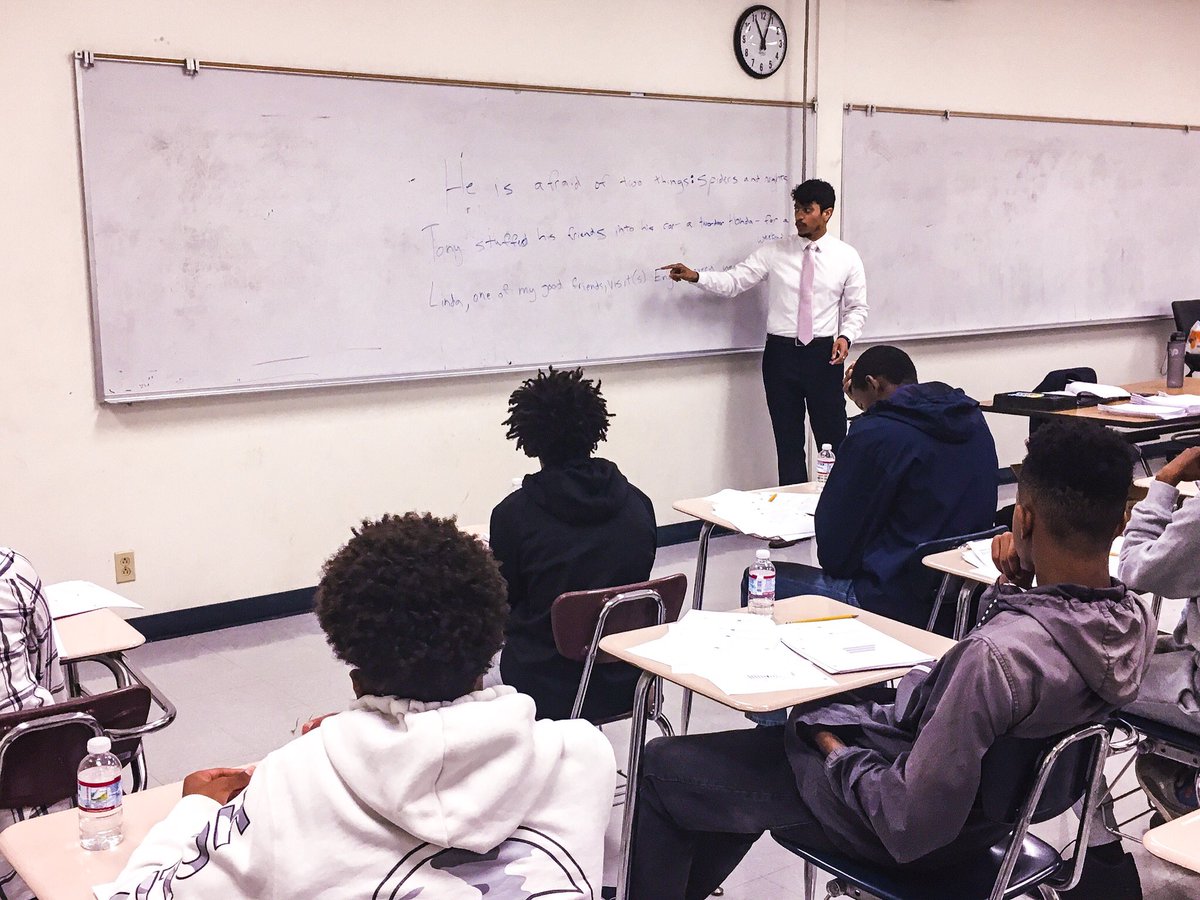 He is afraid of two things: Spiders and
Tony stuffed his friends into his car - a - for a
weekend
Linda, one of my good friends, visit(s)